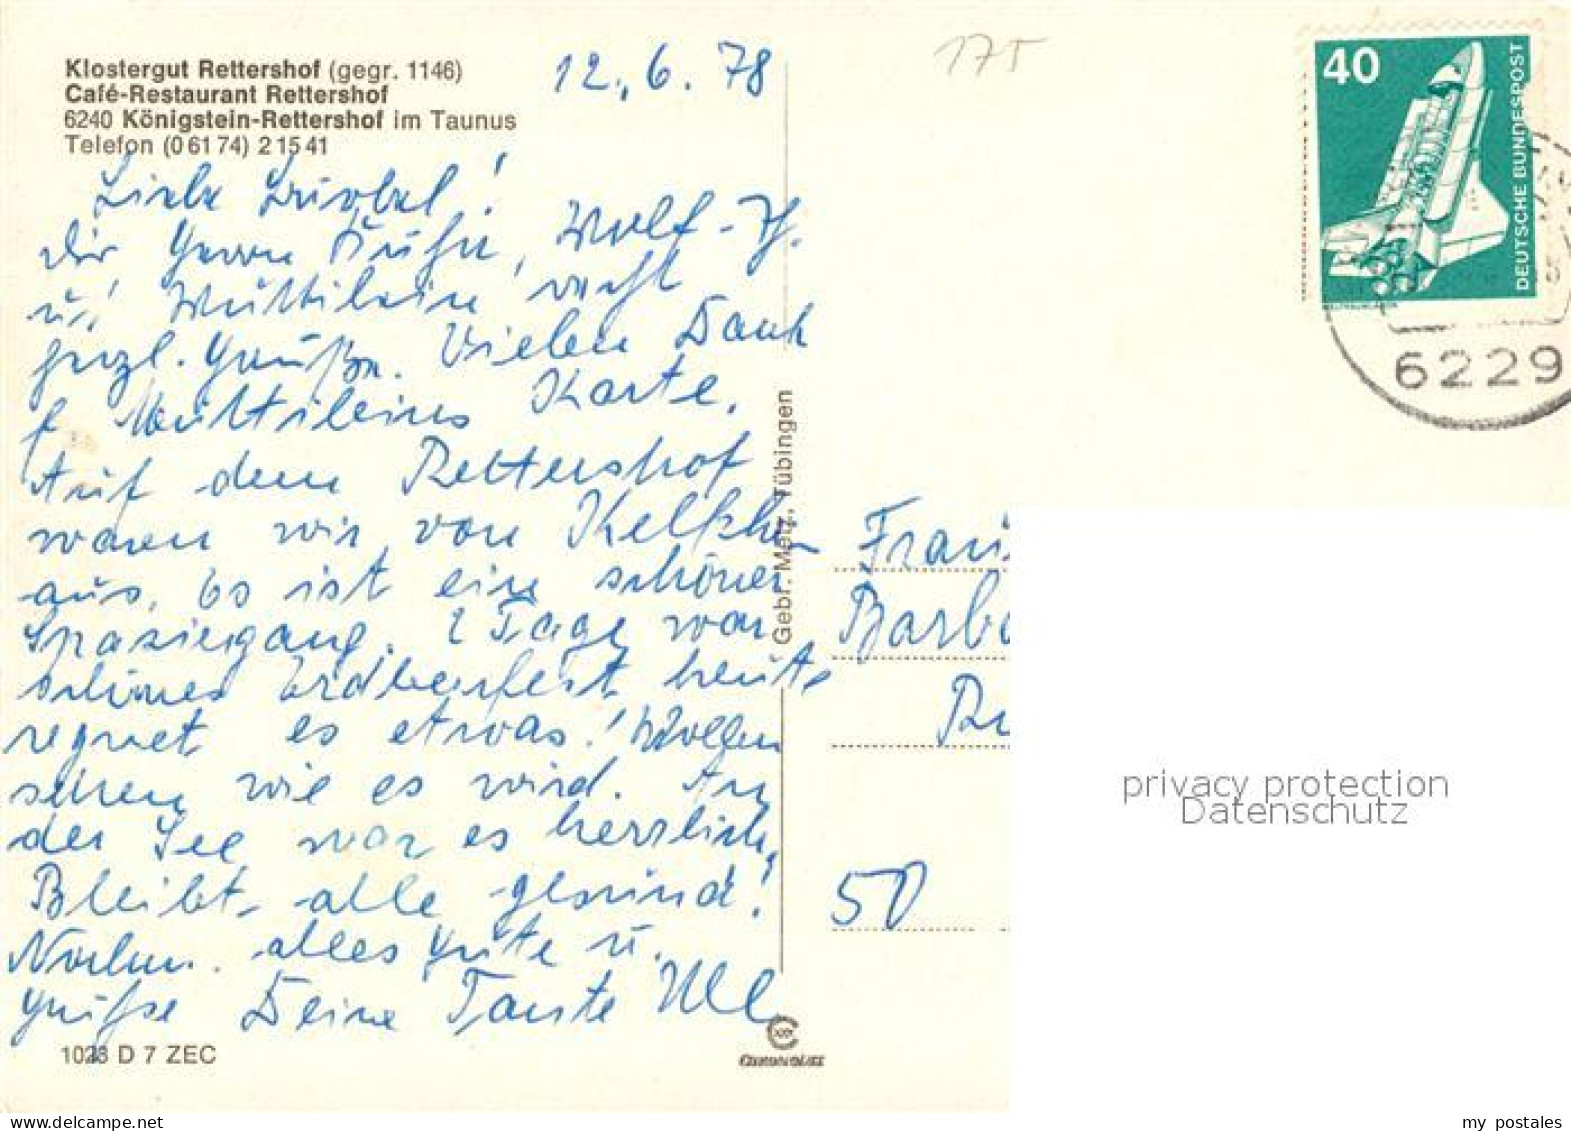 Klostergut Rettershof (gegr. 1146)
Café-Restaurant Rettershof
6240 Königstein-Rettershof im Taunus
Telefon (0 61 74) 2 15 41
12., 6. 78
175
40
DEUTSCHE BUNDESPOST
6229
Liebe Bärbel!
Dir Herrn Kuhn, Wolf-H.
u.! Muttilein recht
herzl. Grüße. Vielen Dank
f Muttileins Karte.
Auf dem Rettershof
waren wir von Kelkh
aus. Es ist ein schöner
Spaziergang. 2 Tage war
schönes Erdbeerfest heute
regnet es etwas! Wollen
sehen wie es wird. An
der See war es herrlich,
Bleibt alle gesund!
Nochm. alles Gute u.
Grüße Deine Tante
Gebr. Metz, Tübingen
Frau
Barb
50
privacy protection
Datenschutz
1023 D 7 ZEC
my_postales